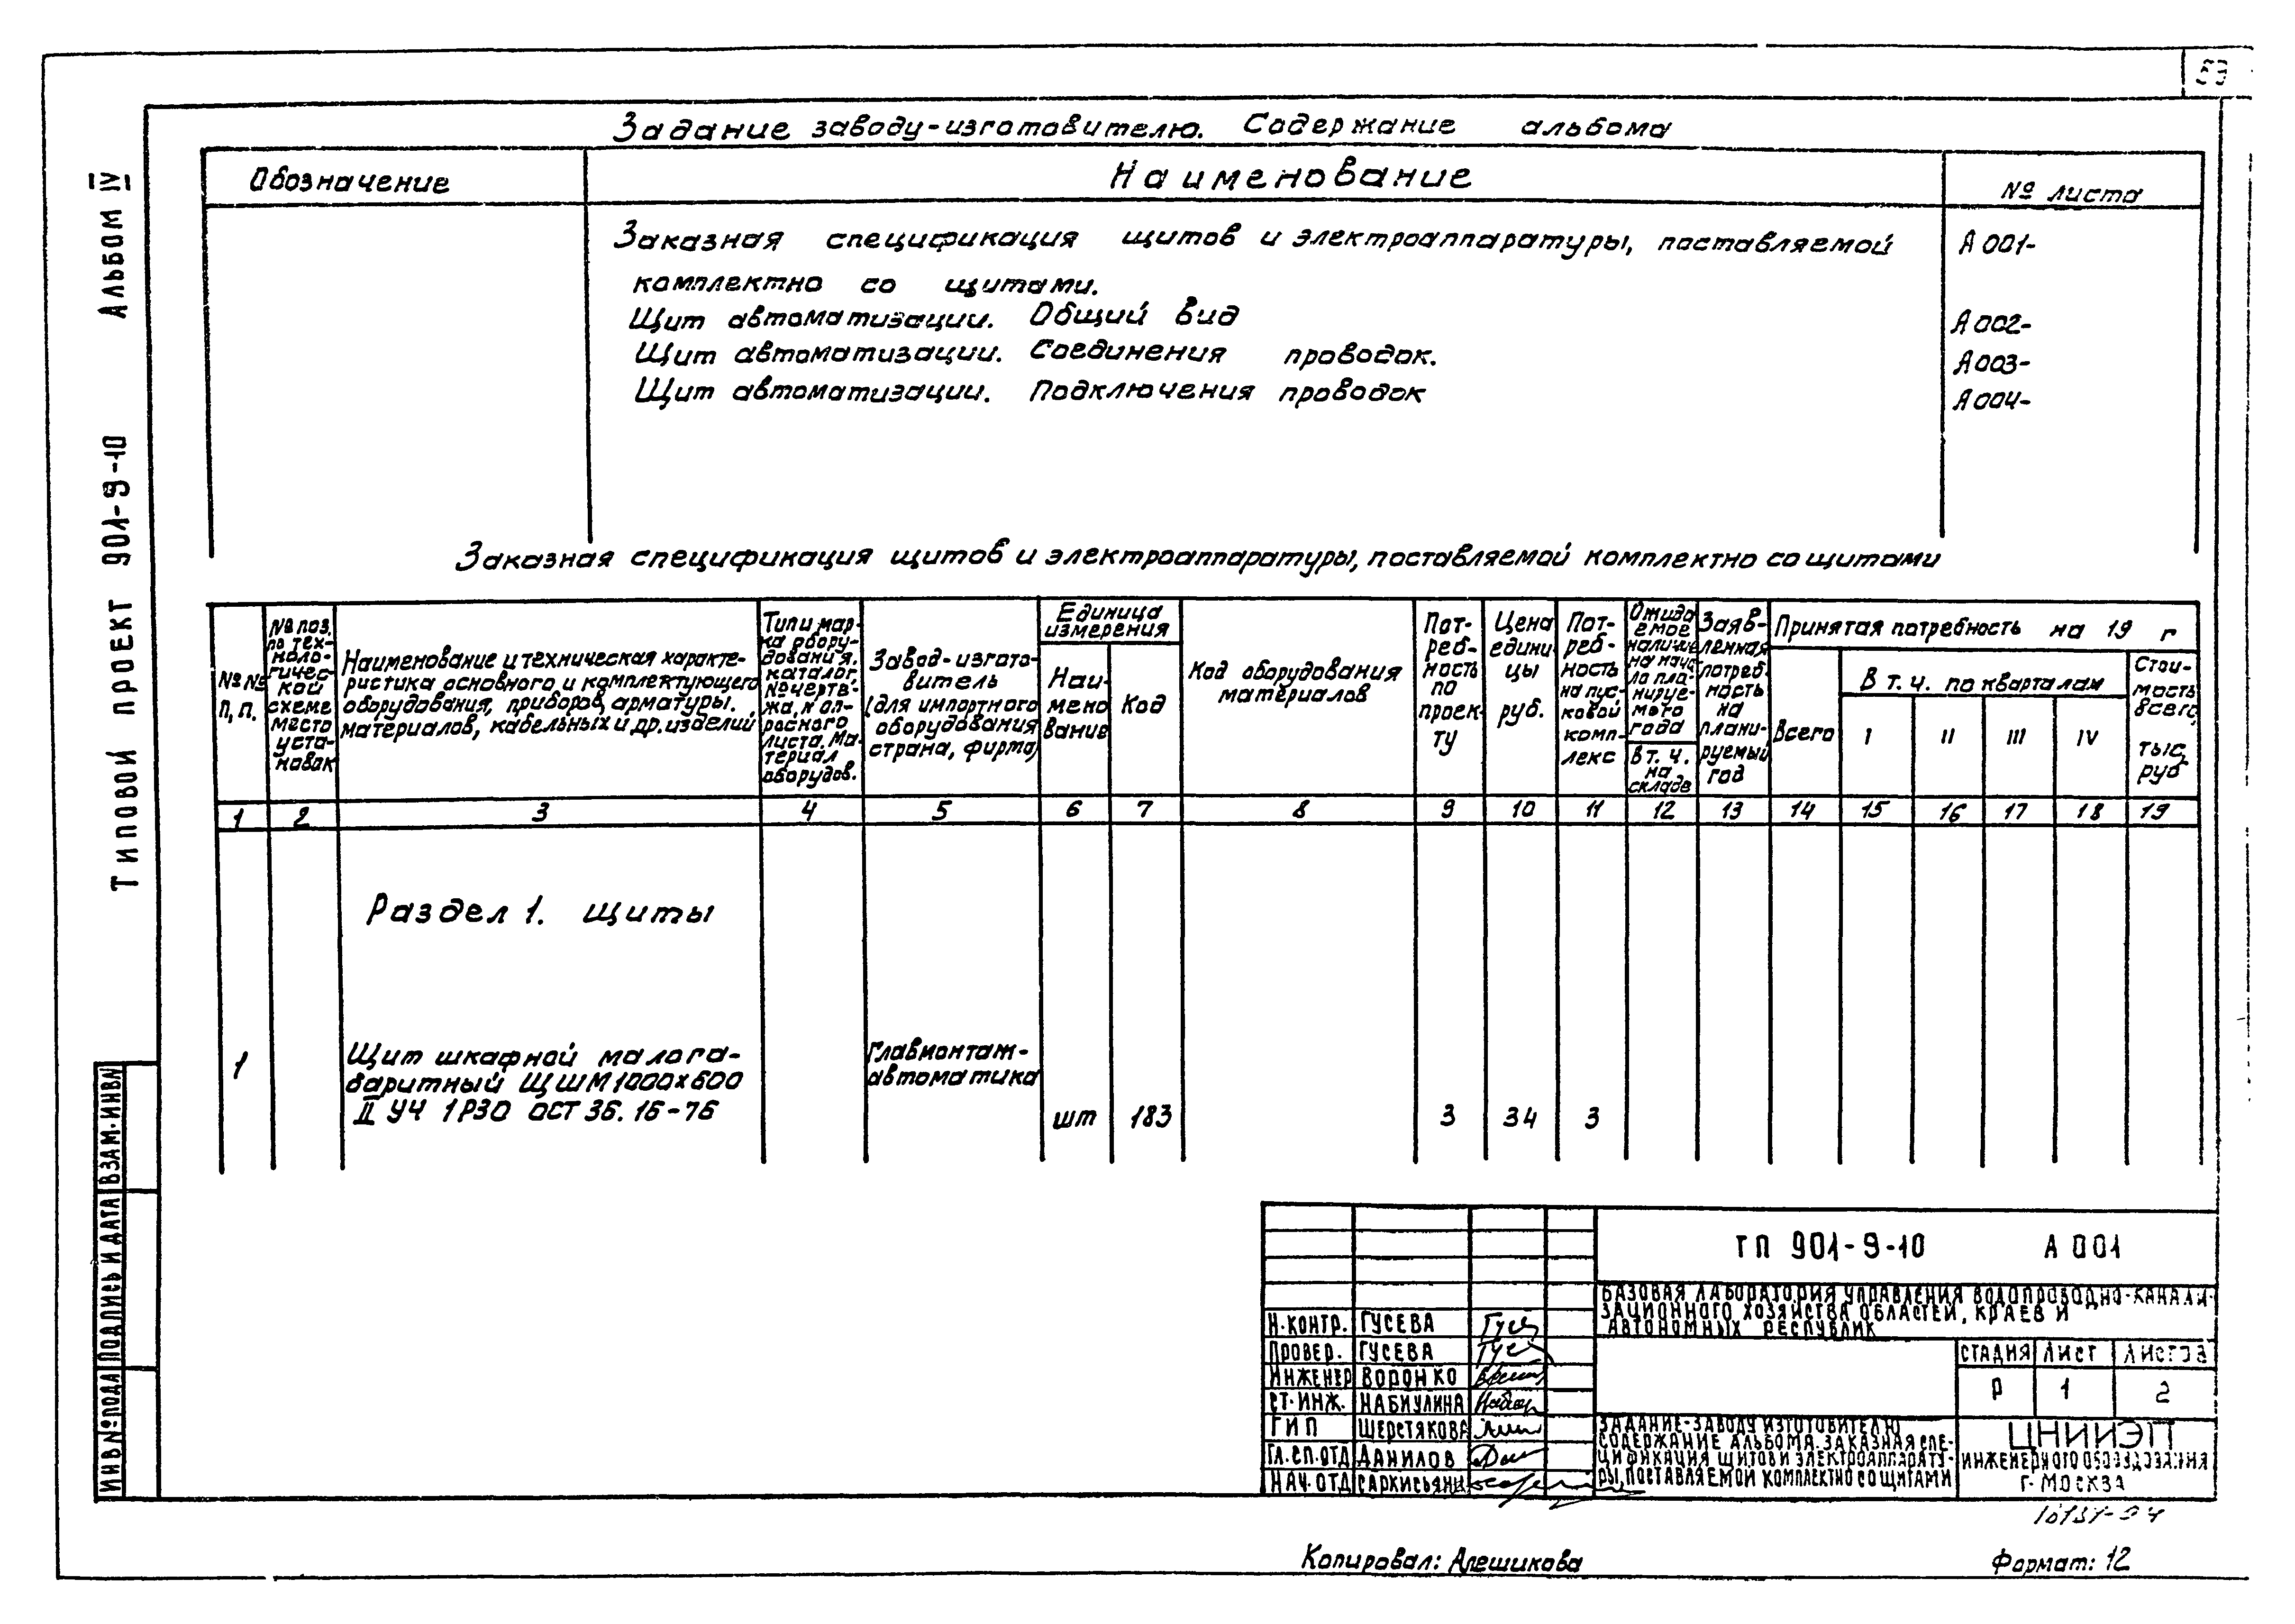 Задание заводу-изготовителю. Содержание альбома
Обозначение
Наименование
№ листа
Заказная спецификация щитов и электроаппаратуры, поставляемой
комплектно со щитами.
А 001-
Щит автоматизации. Общий вид
А 002-
Щит автоматизации. Соединения проводок.
А 003-
Щит автоматизации. Подключения проводок
А 004-
Типовой проект 901-9-10 Альбом IV
Заказная спецификация щитов и электроаппаратуры, поставляемой комплектно со щитами
№№
п,п.
№ поз.
по тех-
ноло-
гичес-
кой
схеме
место
уста-
новак
Наименование и техническая характе-
ристика основного и комплектующего
оборудования, приборов, арматуры.
материалов, кабельных и др. изделий
Тип и мар-
ка обору-
дования.
каталог,
№ черте-
жа, № оп-
росного
листа. Ма-
териал
оборудов.
Завод-изгото-
витель
(для импортного
оборудования
страна, фирма)
Единица
измерения
Наи-
мено
вание
Код
Код оборудования
материалов
Пот-
реб-
ность
по
проек-
ту
Цена
едини-
цы
руб.
Пот-
реб-
ность
на пус-
ковой
комп-
лекс
Ожида
емое
наличие
на нача
ло пла-
нируе-
мого
года
В т. ч.
на
складе
Заяв-
ленная
потреб-
ность
на
плани-
руемый
год
Принятая потребность на 19 г
Всего
В т. ч. по кварталам
I II III IV
Стои-
мость
всего,
тыс.
руб
1 2 3 4 5 6 7 8 9 10 11 12 13 14 15 16 17 18 19
Раздел 1. Щиты
1
Щит шкафной малога-
баритный ЩШМ 1000х600
II УЧ 1Р30 ОСТ 36.16-76
Главмонтаж-
автоматика
шт 183 3 34 3
ВЗАМ. ИНВ№
ПОДПИСЬ И ДАТА
ИНВ № ПОДЛ
ТП 901-9-10 А 001
БАЗОВАЯ ЛАБОРАТОРИЯ УПРАВЛЕНИЯ ВОДОПРОВОДНО-КАНАЛИ-
ЗАЦИОННОГО ХОЗЯЙСТВА ОБЛАСТЕЙ, КРАЕВ И
АВТОНОМНЫХ РЕСПУБЛИК
Н. КОНТР. ГУСЕВА
ПРОВЕР. ГУСЕВА
ИНЖЕНЕР ВОРОНКО
СТ. ИНЖ. НАБИУЛИНА
ГИП ШЕРСТЯКОВА
ГЛ. СП. ОТД ДАНИЛОВ
НАЧ. ОТД САРКИСЬЯН
СТАДИЯ ЛИСТ ЛИСТОВ
Р 1 2
ЗАДАНИЕ-ЗАВОДУ ИЗГОТОВИТЕЛЮ
СОДЕРЖАНИЕ АЛЬБОМА. ЗАКАЗНАЯ СПЕ-
ЦИФИКАЦИЯ ЩИТОВ И ЭЛЕКТРОАППАРАТУ-
РЫ, ПОСТАВЛЯЕМОЙ КОМПЛЕКТНО СО ЩИТАМИ
ЦНИИЭП
ИНЖЕНЕРНОГО ОБОРУДОВАНИЯ
Г. МОСКВА
Копировал: Алешикова
Формат: 12